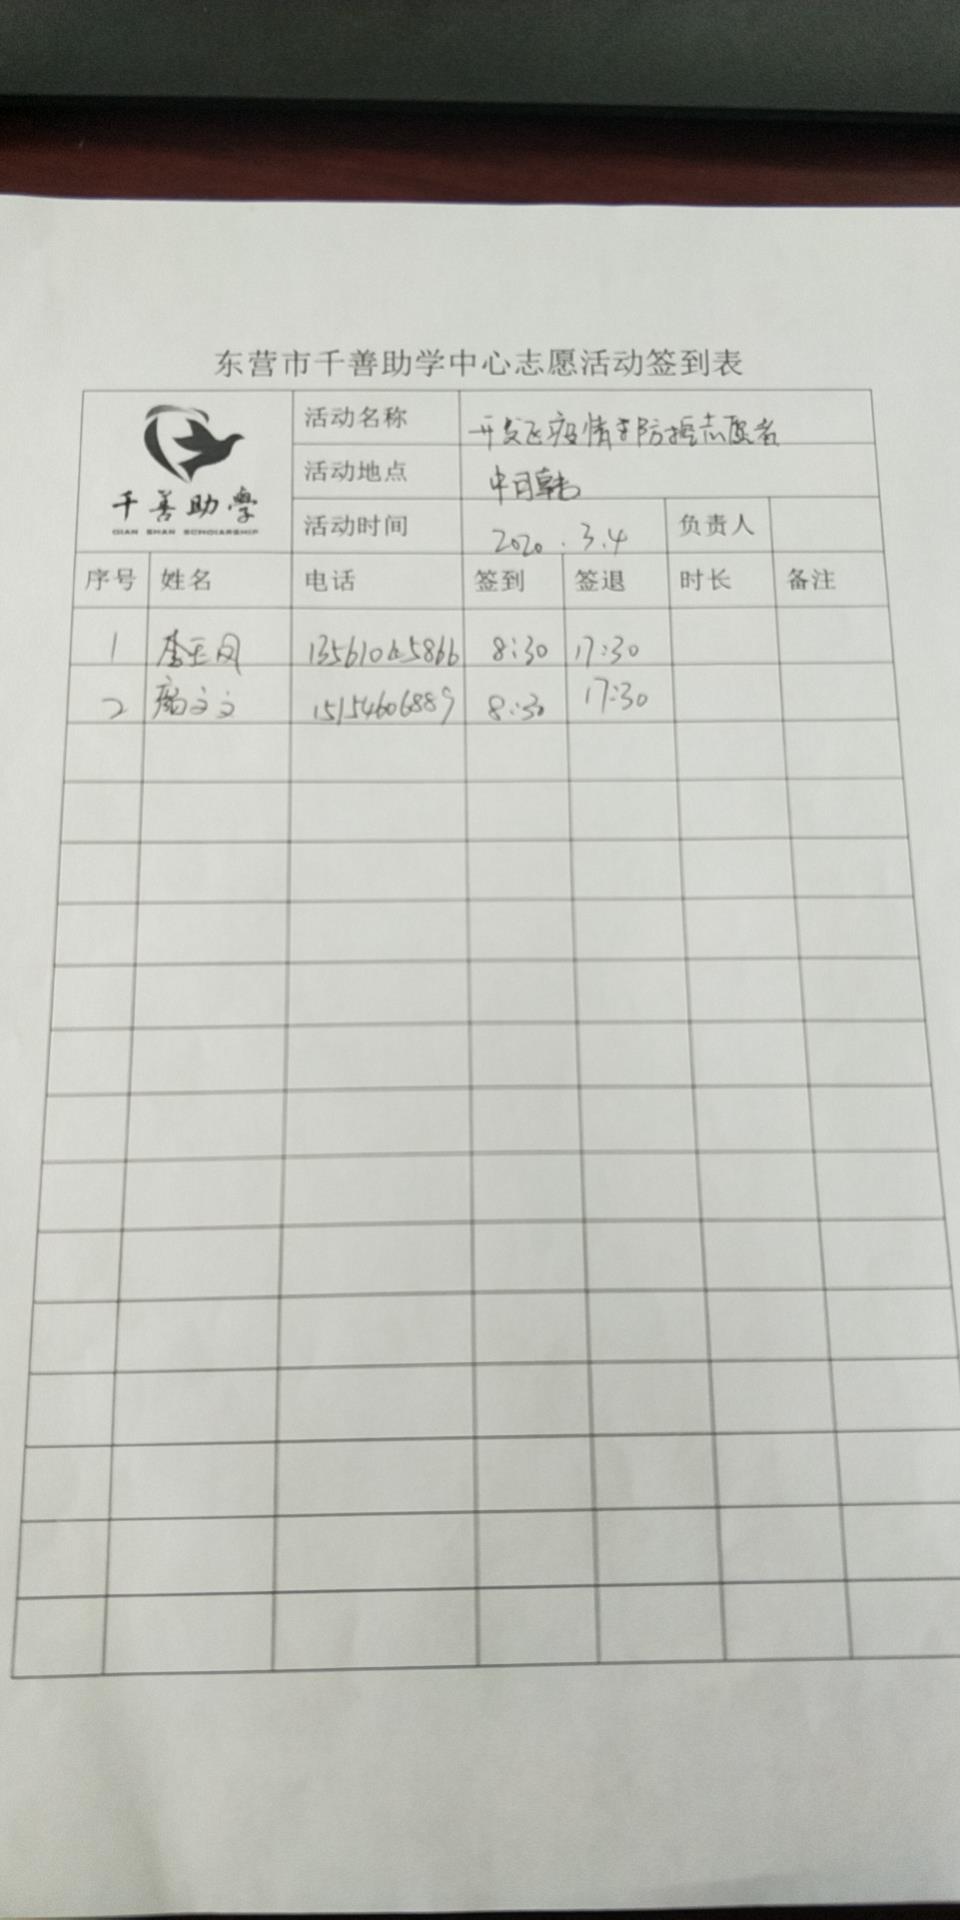 东营市千善助学中心志愿活动签到表
千善助學
QIAN SHAN SCHOLARSHIP
活动名称 开发区疫情防控志愿者
活动地点 中日韩
活动时间 2020.3.4 负责人
序号 姓名 电话 签到 签退 时长 备注
1 李玉凤 8:30 17:30
2 文文 15154606889 8:30 17:30